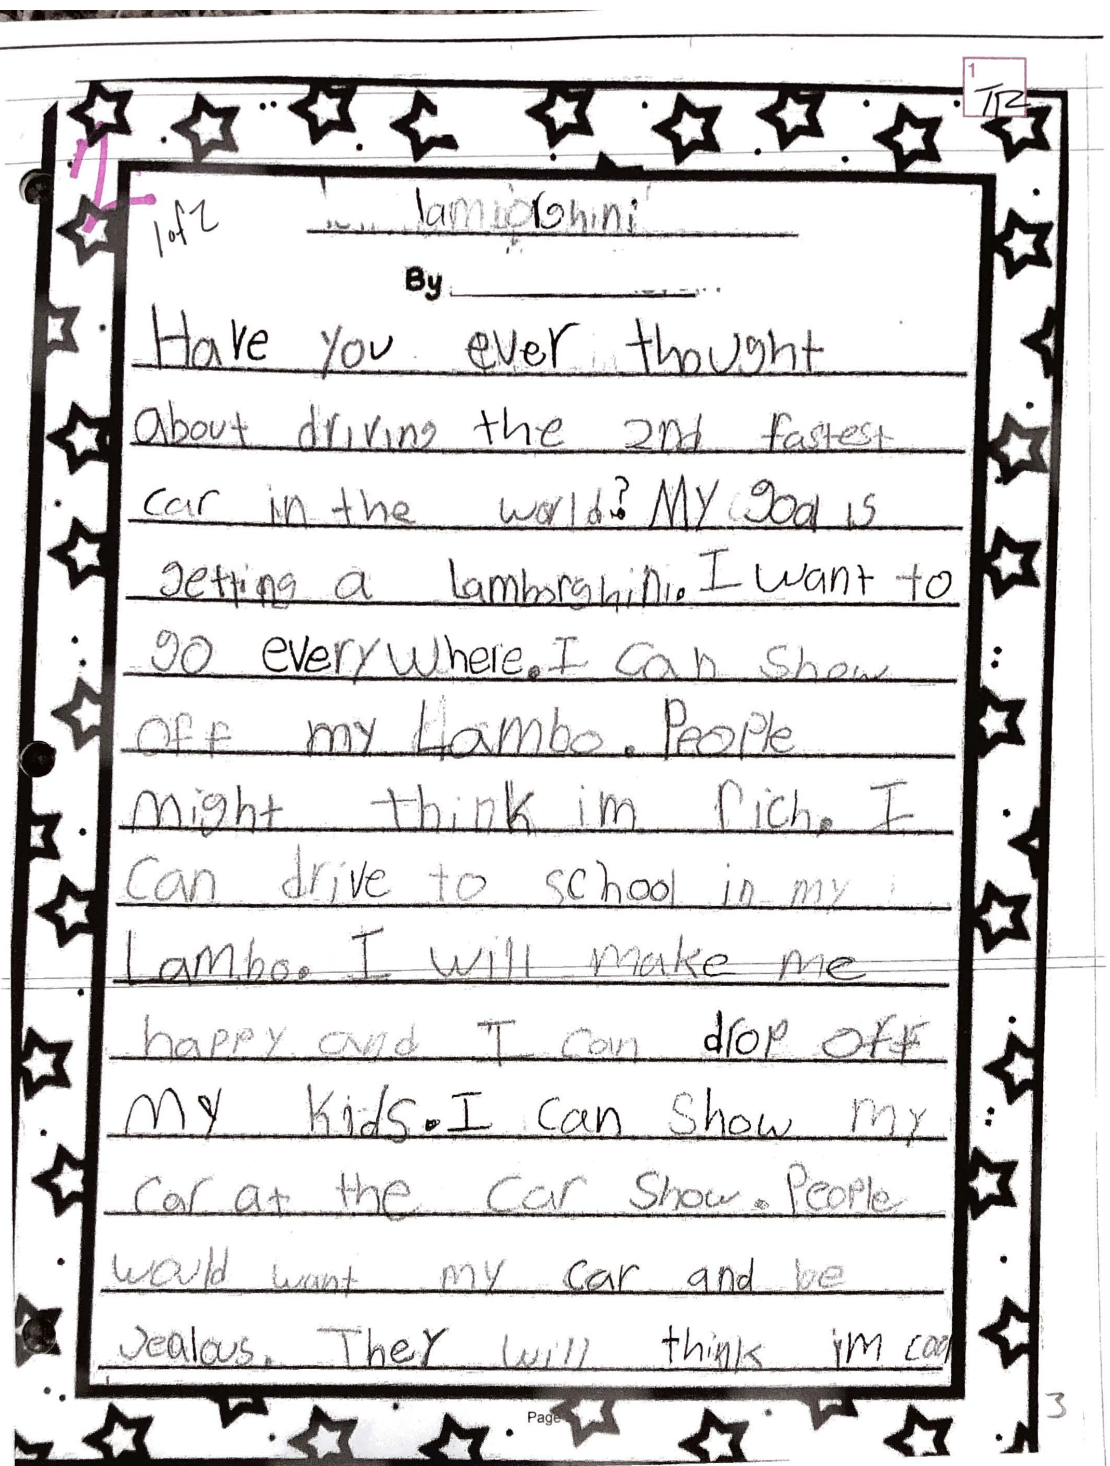 1
TR
1 of 2
lamborghini
By
Have you ever thought
about driving the 2nd fastest
car in the world? My goal is
getting a lamborghini. I want to
go everywhere. I can show
off my Lambo. People
might think im rich. I
can drive to school in my
Lambo. I will make me
happy and I can drop off
my kids. I can show my
car at the car show. People
would want my car and be
jealous. They will think im cool
Page
3